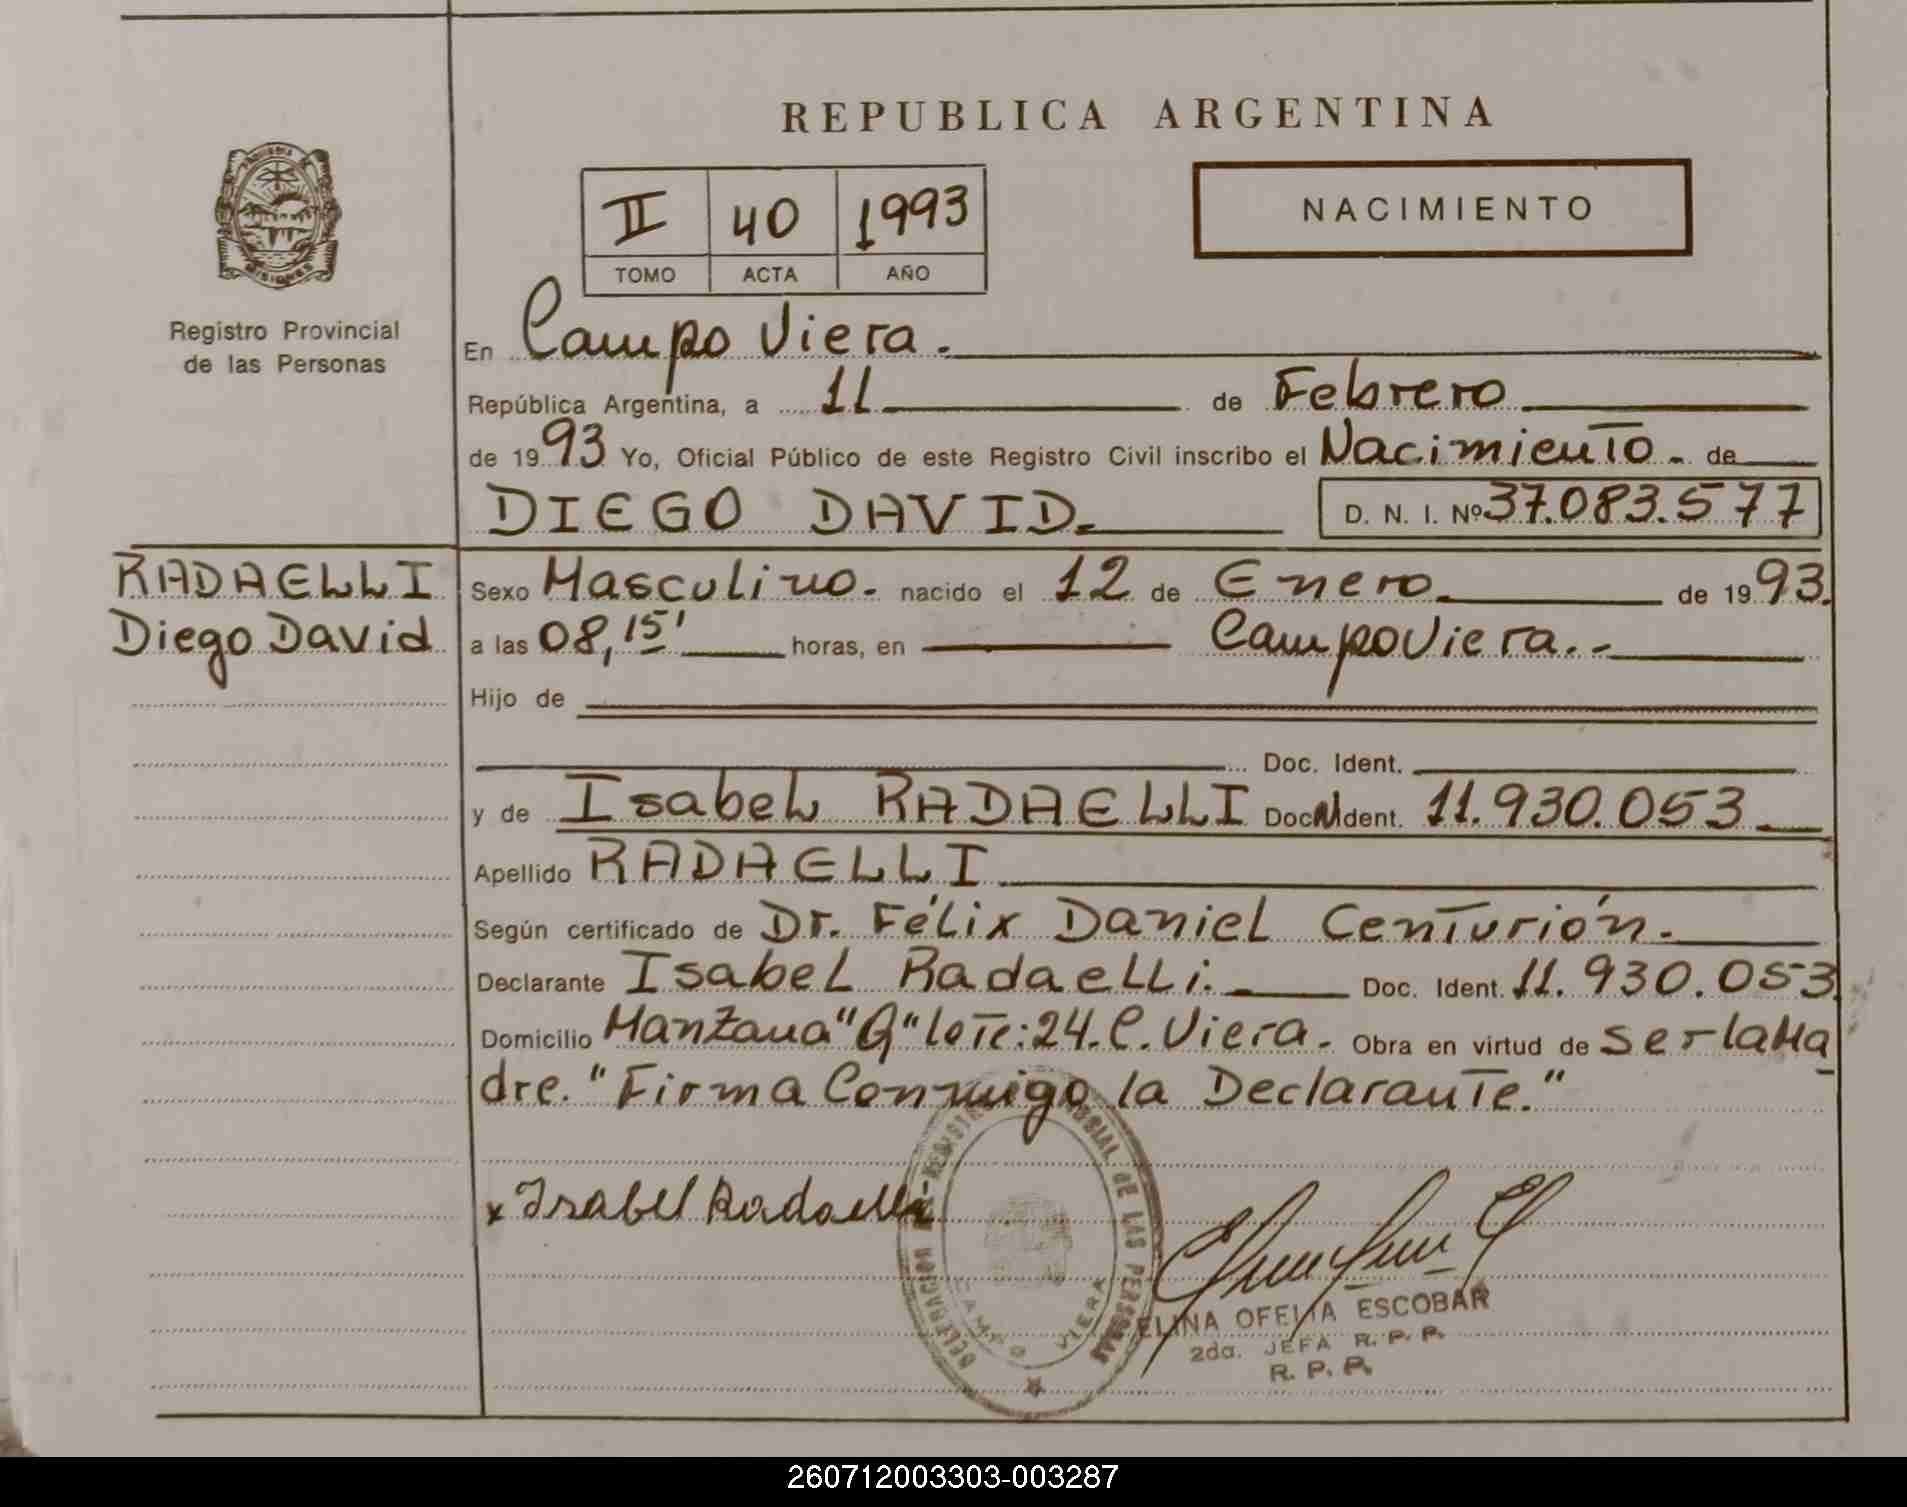 REPUBLICA ARGENTINA
II 40 1993
TOMO ACTA AÑO
NACIMIENTO
MISIONES
Registro Provincial
de las Personas
En Campo Viera.
República Argentina, a 11 de Febrero
de 1993 Yo, Oficial Público de este Registro Civil inscribo el Nacimiento. de
DIEGO DAVID. D. N. I. Nº 37.083.577
RADAELLI
Diego David
Sexo Masculino. nacido el 12 de Enero. de 1993.
a las 08,15' horas, en Campo Viera.-
Hijo de
Doc. Ident.
y de Isabel RADAELLI Doc. Ident. 11.930.053
Apellido RADAELLI
Según certificado de Dr. Félix Daniel Centurión.
Declarante Isabel Radaelli. Doc. Ident. 11.930.053
Domicilio Manzana "G" lote: 24. C. Viera. Obra en virtud de ser la Ma
dre. "Firma Conmigo la Declarante."
x Isabel Radaelli
DELEGACION REGISTRO PROVINCIAL DE LAS PERSONAS
CAMPO VIERA
ELINA OFELIA ESCOBAR
2da. JEFA R. P. P.
R. P. P.
260712003303-003287